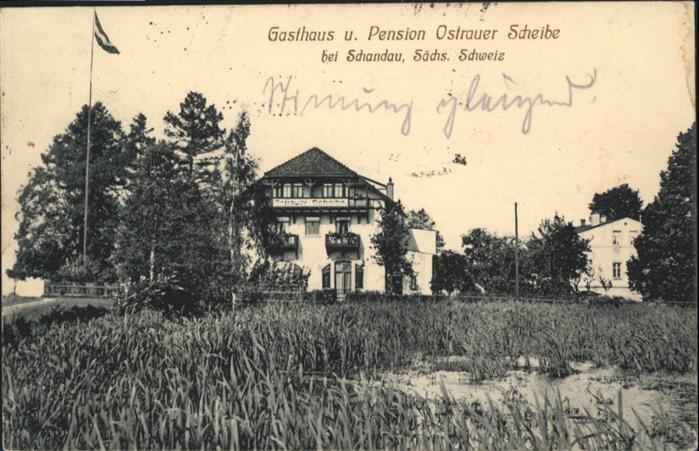 Gasthaus u. Pension Ostrauer Scheibe
bei Schandau, Sächs. Schweiz
Ostrauer Scheibe